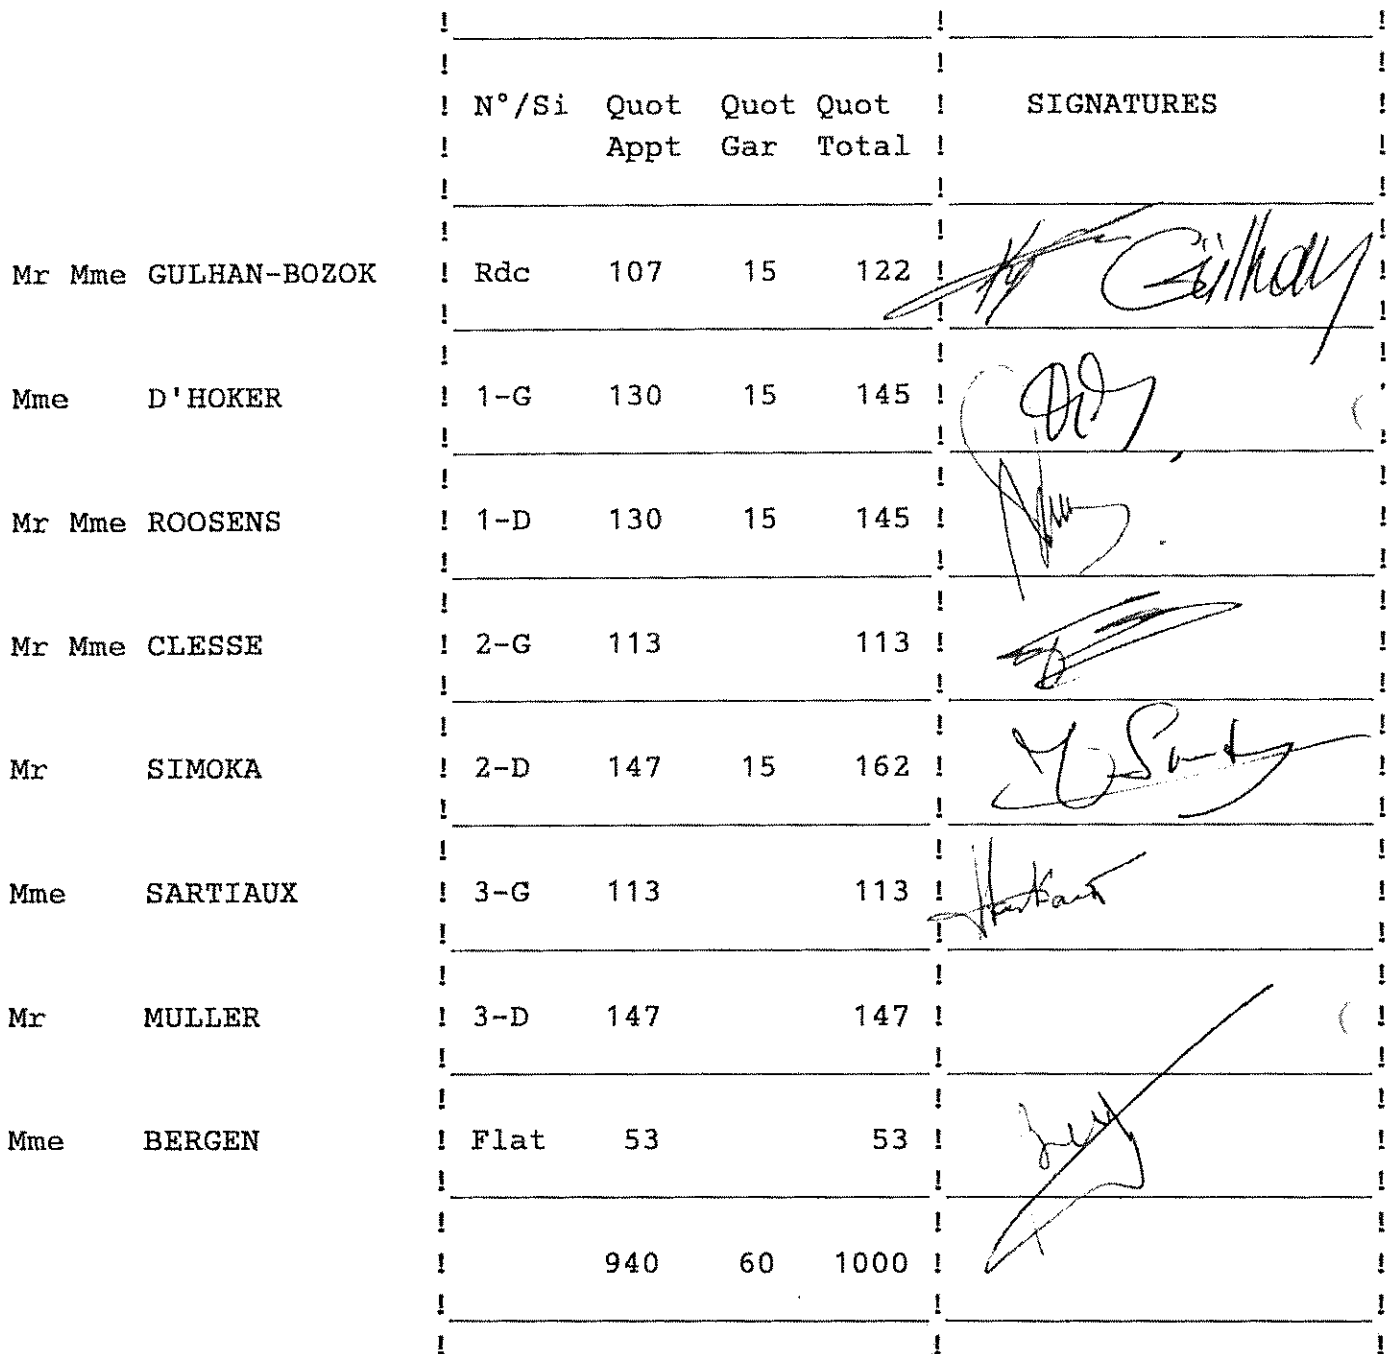 N°/Si Quot Quot Quot SIGNATURES
Appt Gar Total
Mr Mme GULHAN-BOZOK Rdc 107 15 122 Gülhan
Mme D'HOKER 1-G 130 15 145
Mr Mme ROOSENS 1-D 130 15 145
Mr Mme CLESSE 2-G 113 113
Mr SIMOKA 2-D 147 15 162
Mme SARTIAUX 3-G 113 113
Mr MULLER 3-D 147 147
Mme BERGEN Flat 53 53
940 60 1000